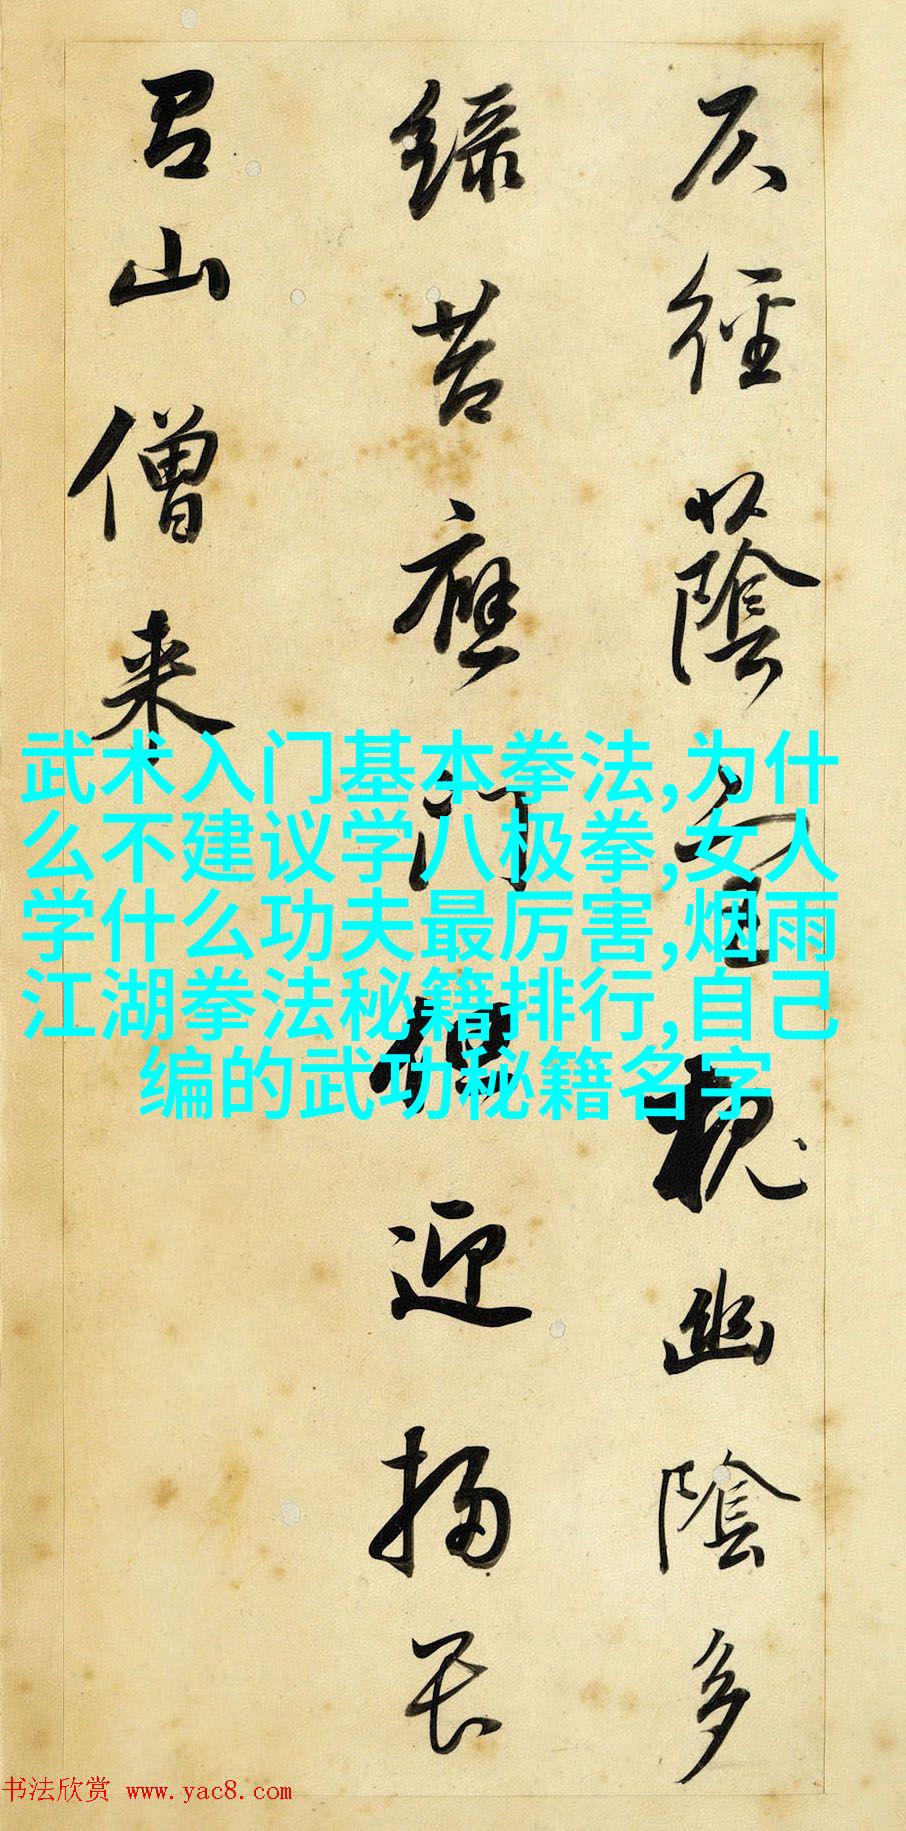 仄徑蔭宮槐幽陰多
緑苔應門迎掃畏
有山僧来
武术入门基本拳法,为什
么不建议学八极拳,女人
学什么功夫最厉害,烟雨
江湖拳法秘籍排行,自己
编的武功秘籍名字
书法欣赏 www.yac8.com